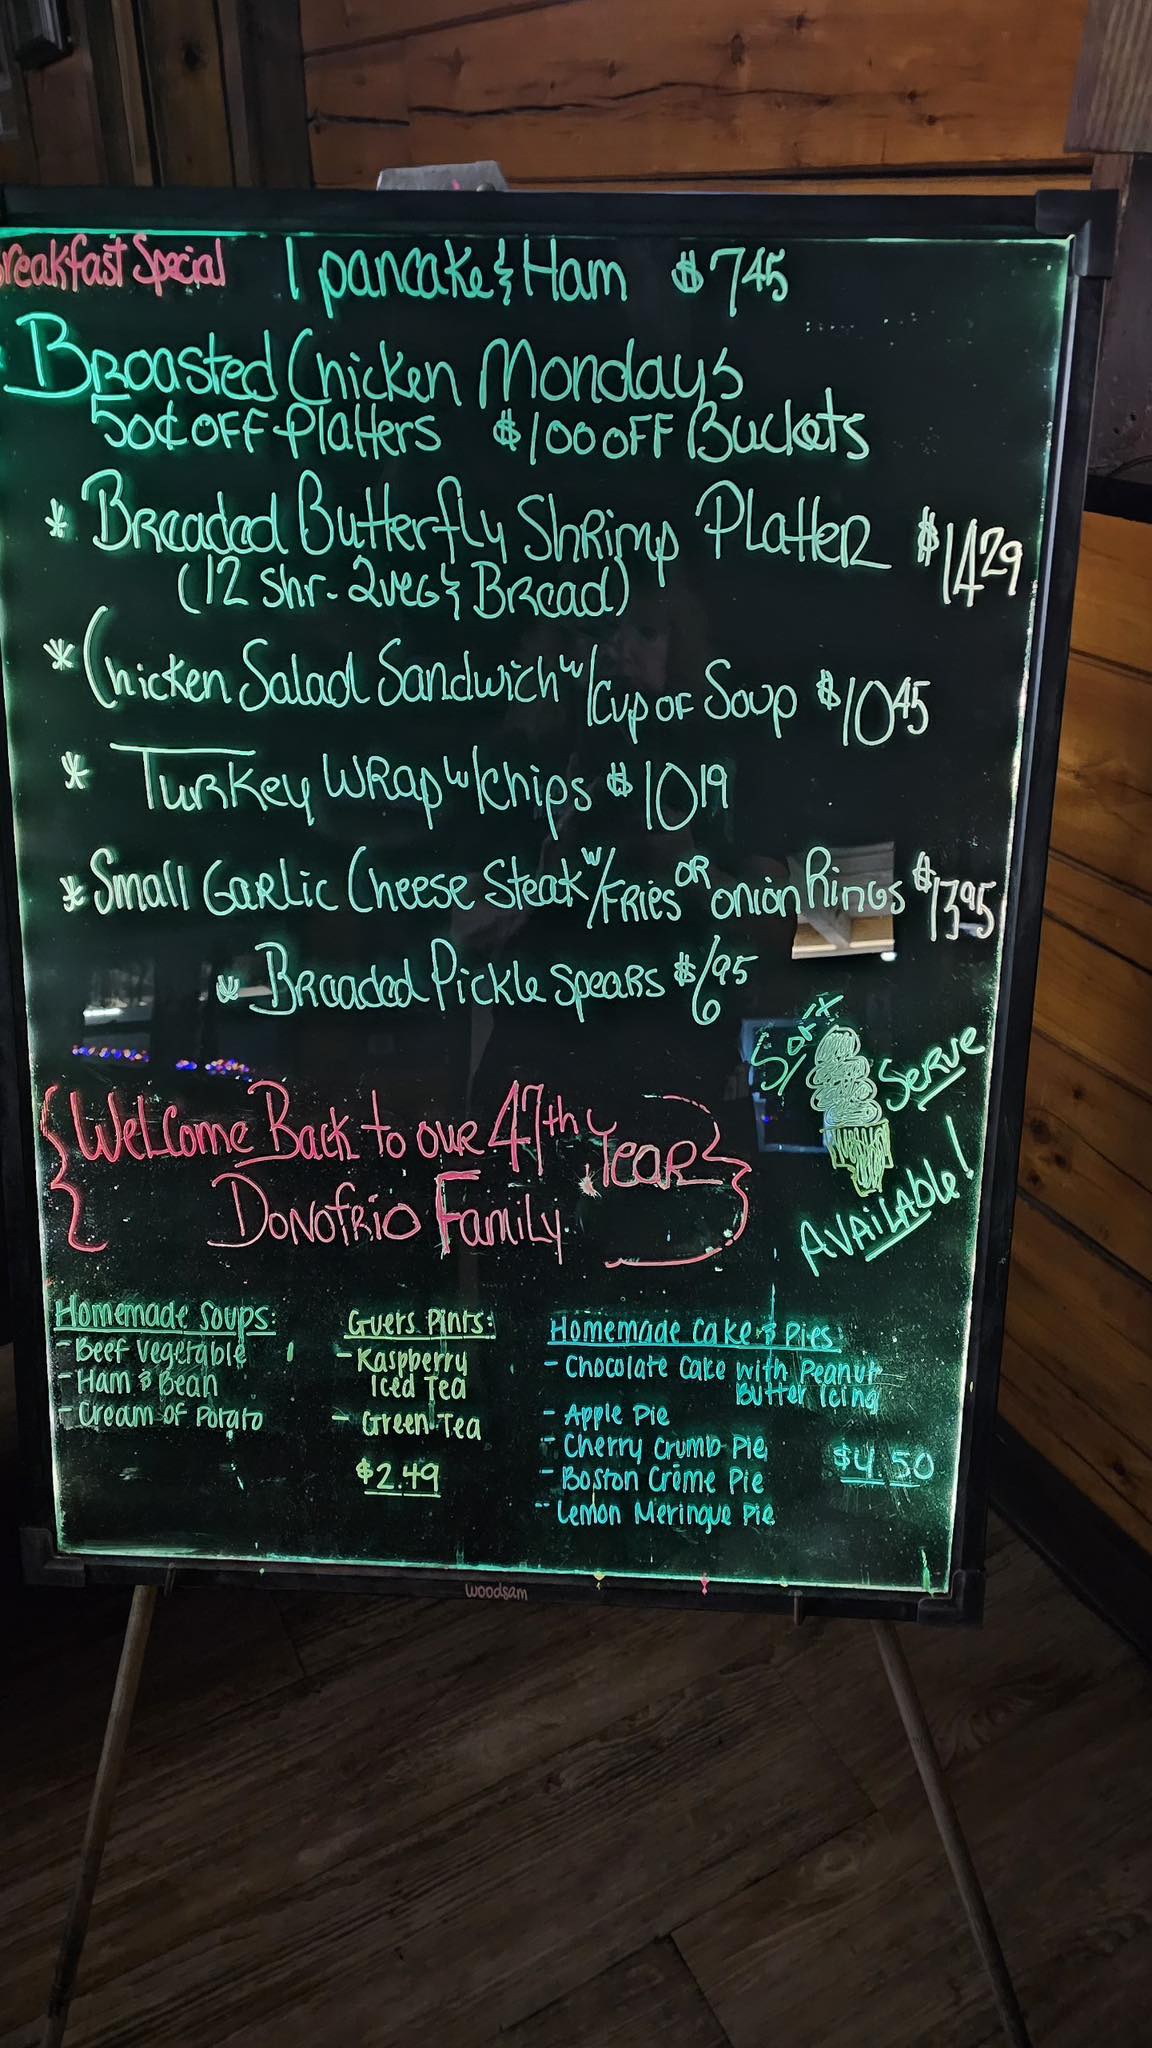 reakfast Special 1 pancake & Ham $7.45
Broasted Chicken Mondays
50¢ OFF Platters $1.00 OFF Buckets
* Breaded Butterfly Shrimp Platter $14.29
(12 Shr- 2veg & Bread)
* Chicken Salad Sandwich w/Cup of Soup $10.45
* Turkey Wrap w/chips $10.19
* Small Garlic Cheese Steak w/Fries OR onion Rings $13.95
* Breaded Pickle Spears $6.95
Soft Serve
Available!
Welcome Back to our 47th Year
Donofrio Family
Homemade Soups:
- Beef Vegetable
- Ham & Bean
- Cream of Potato
Guers Pints:
- Raspberry
Iced Tea
- Green Tea
$2.49
Homemade Cake & Pies:
- Chocolate Cake with Peanut
Butter Icing
- Apple Pie
- Cherry Crumb Pie
- Boston Crème Pie
- Lemon Meringue Pie
$4.50
woodsam